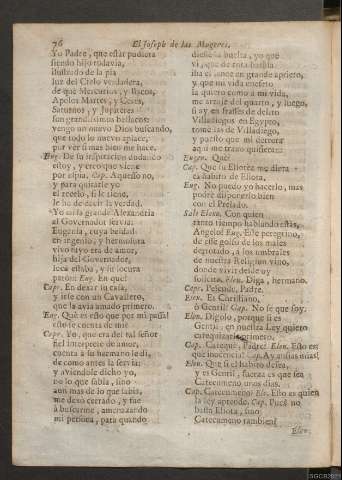 76
El Joseph de las Mugeres.
Yo Padre, que estàr pudiera
siendo hijo todavia,
ilustrado de la pia
luz del Cielo verdadera,
de que Mercurios, y Bacos,
Apolos Martes, y Ceres,
Saturnos, y Jupiteres
son grandissimos bellacos:
vengo un nuevo Dios buscando,
que todo lo nuevo aplace,
por vèr si mas bien me hace.
Eug. De su inspiracion dudando
estoy, y creo que viene
por espia. Cap. Aquesso no,
y para quitarle yo
el rezelo, si le tiene,
le he de decir la verdad.
Yo en la grande Alexandria
al Governador servia:
Eugenia, cuya beldad
en ingenio, y hermosura
vivo rayo era de amor,
hija del Governador,
loca estaba, y su locura
paròn: Eug. En què?
Cap. En dexar su casa,
y irse con un Cavallero,
que la avia amado primero.
Eug. Què es esto que por mi passa!
esto se cuenta de mi?
Cap. Yo, que era del tal señor
fiel interprete de amor,
cuenta à su hermano le dì,
de como antes la servia;
y aviendole dicho yo,
no lo que sabia, sino
aun mas de lo que sabia,
me dexo cerrado, y fue
à buscarme, amenazando
mi persona, para quando
diesse la buelta, yo què
vi, que de rota batida
iba el lance en grande aprieto,
y que mi vida en efeto
la quarto como à mi vida,
me arroje del quarto, y luego,
si ay en frasses de delito
Villadiegos en Egypto,
tomè las de Villadiego,
y puesto que mi derrota
aqui me traxo quisiera:
Eugen. Què?
Cap. Que tu Eliotèz me diera
el habito de Eliota.
Eug. No puedo yo hacerlo, mas
podrè disponerlo bien
con el Prelado.
Sale Elena. Con quien
tanto tiempo hablando estàs,
Angelo? Eug. Este peregrino,
de esse golfo de los males
derrotado, à los umbrales
de nuestra Religion vino,
donde vivir desde oy
solicita. Elen. Diga, hermano.
Cap. Pescude, Padre.
Elen. Es Christiano,
ò Gentil? Cap. No se que soy.
Elen. Digolo, porque si es
Gentil, en nuestra Ley quiero
catequizarle primero.
Cap. Cateque, Padre? Elen. Esto es?
què inocencia! Cap. Ay ansias mias!
Elen. Que si el habito desea,
y es Gentil, fuerza es que sea
Catecumeno unos dias.
Cap. Catecumeno? Ele. Esto es quien
la ley aprende. Cap. Pues no
basta Eliota, sino
Catecumeno tambien?
Elen.